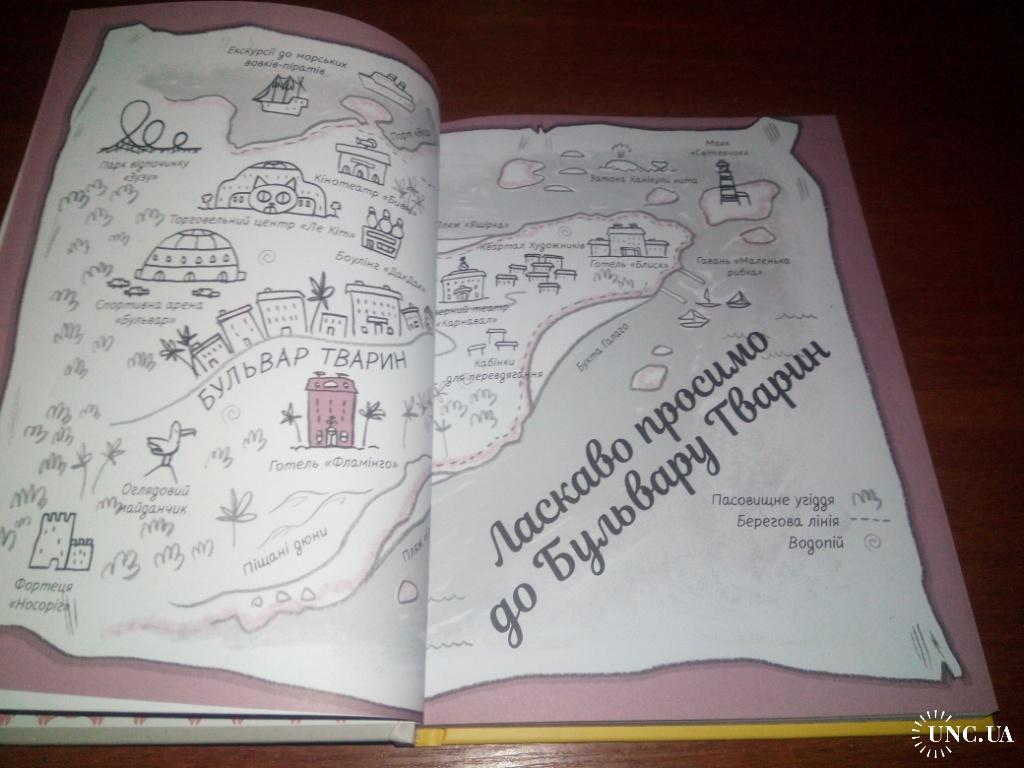 Екскурсії до морських
вовків-піратів
Порт
Парк відпочинку
«Зузу»
Кінотеатр
Торговельний центр «Ле Кіт»
Боулінг «ДакДак»
Спортивна арена
«Бульвар»
БУЛЬВАР ТВАРИН
Готель «Фламінго»
Оглядовий
майданчик
Піщані дюни
Фортеця
«Носоріг»
Пляж
Маяк
«Світлячок»
Затока Канікули кита
Пляж «Ящірка»
Квартал Художників
Готель «Блиск»
Гавань «Маленька
рибка»
театр
«Карнавал»
Кабінки
для перевдягання
Бухта Галаго
Ласкаво просимо
до Бульвару Тварин
Пасовищне угіддя
Берегова лінія
Водопій
UNC.UA